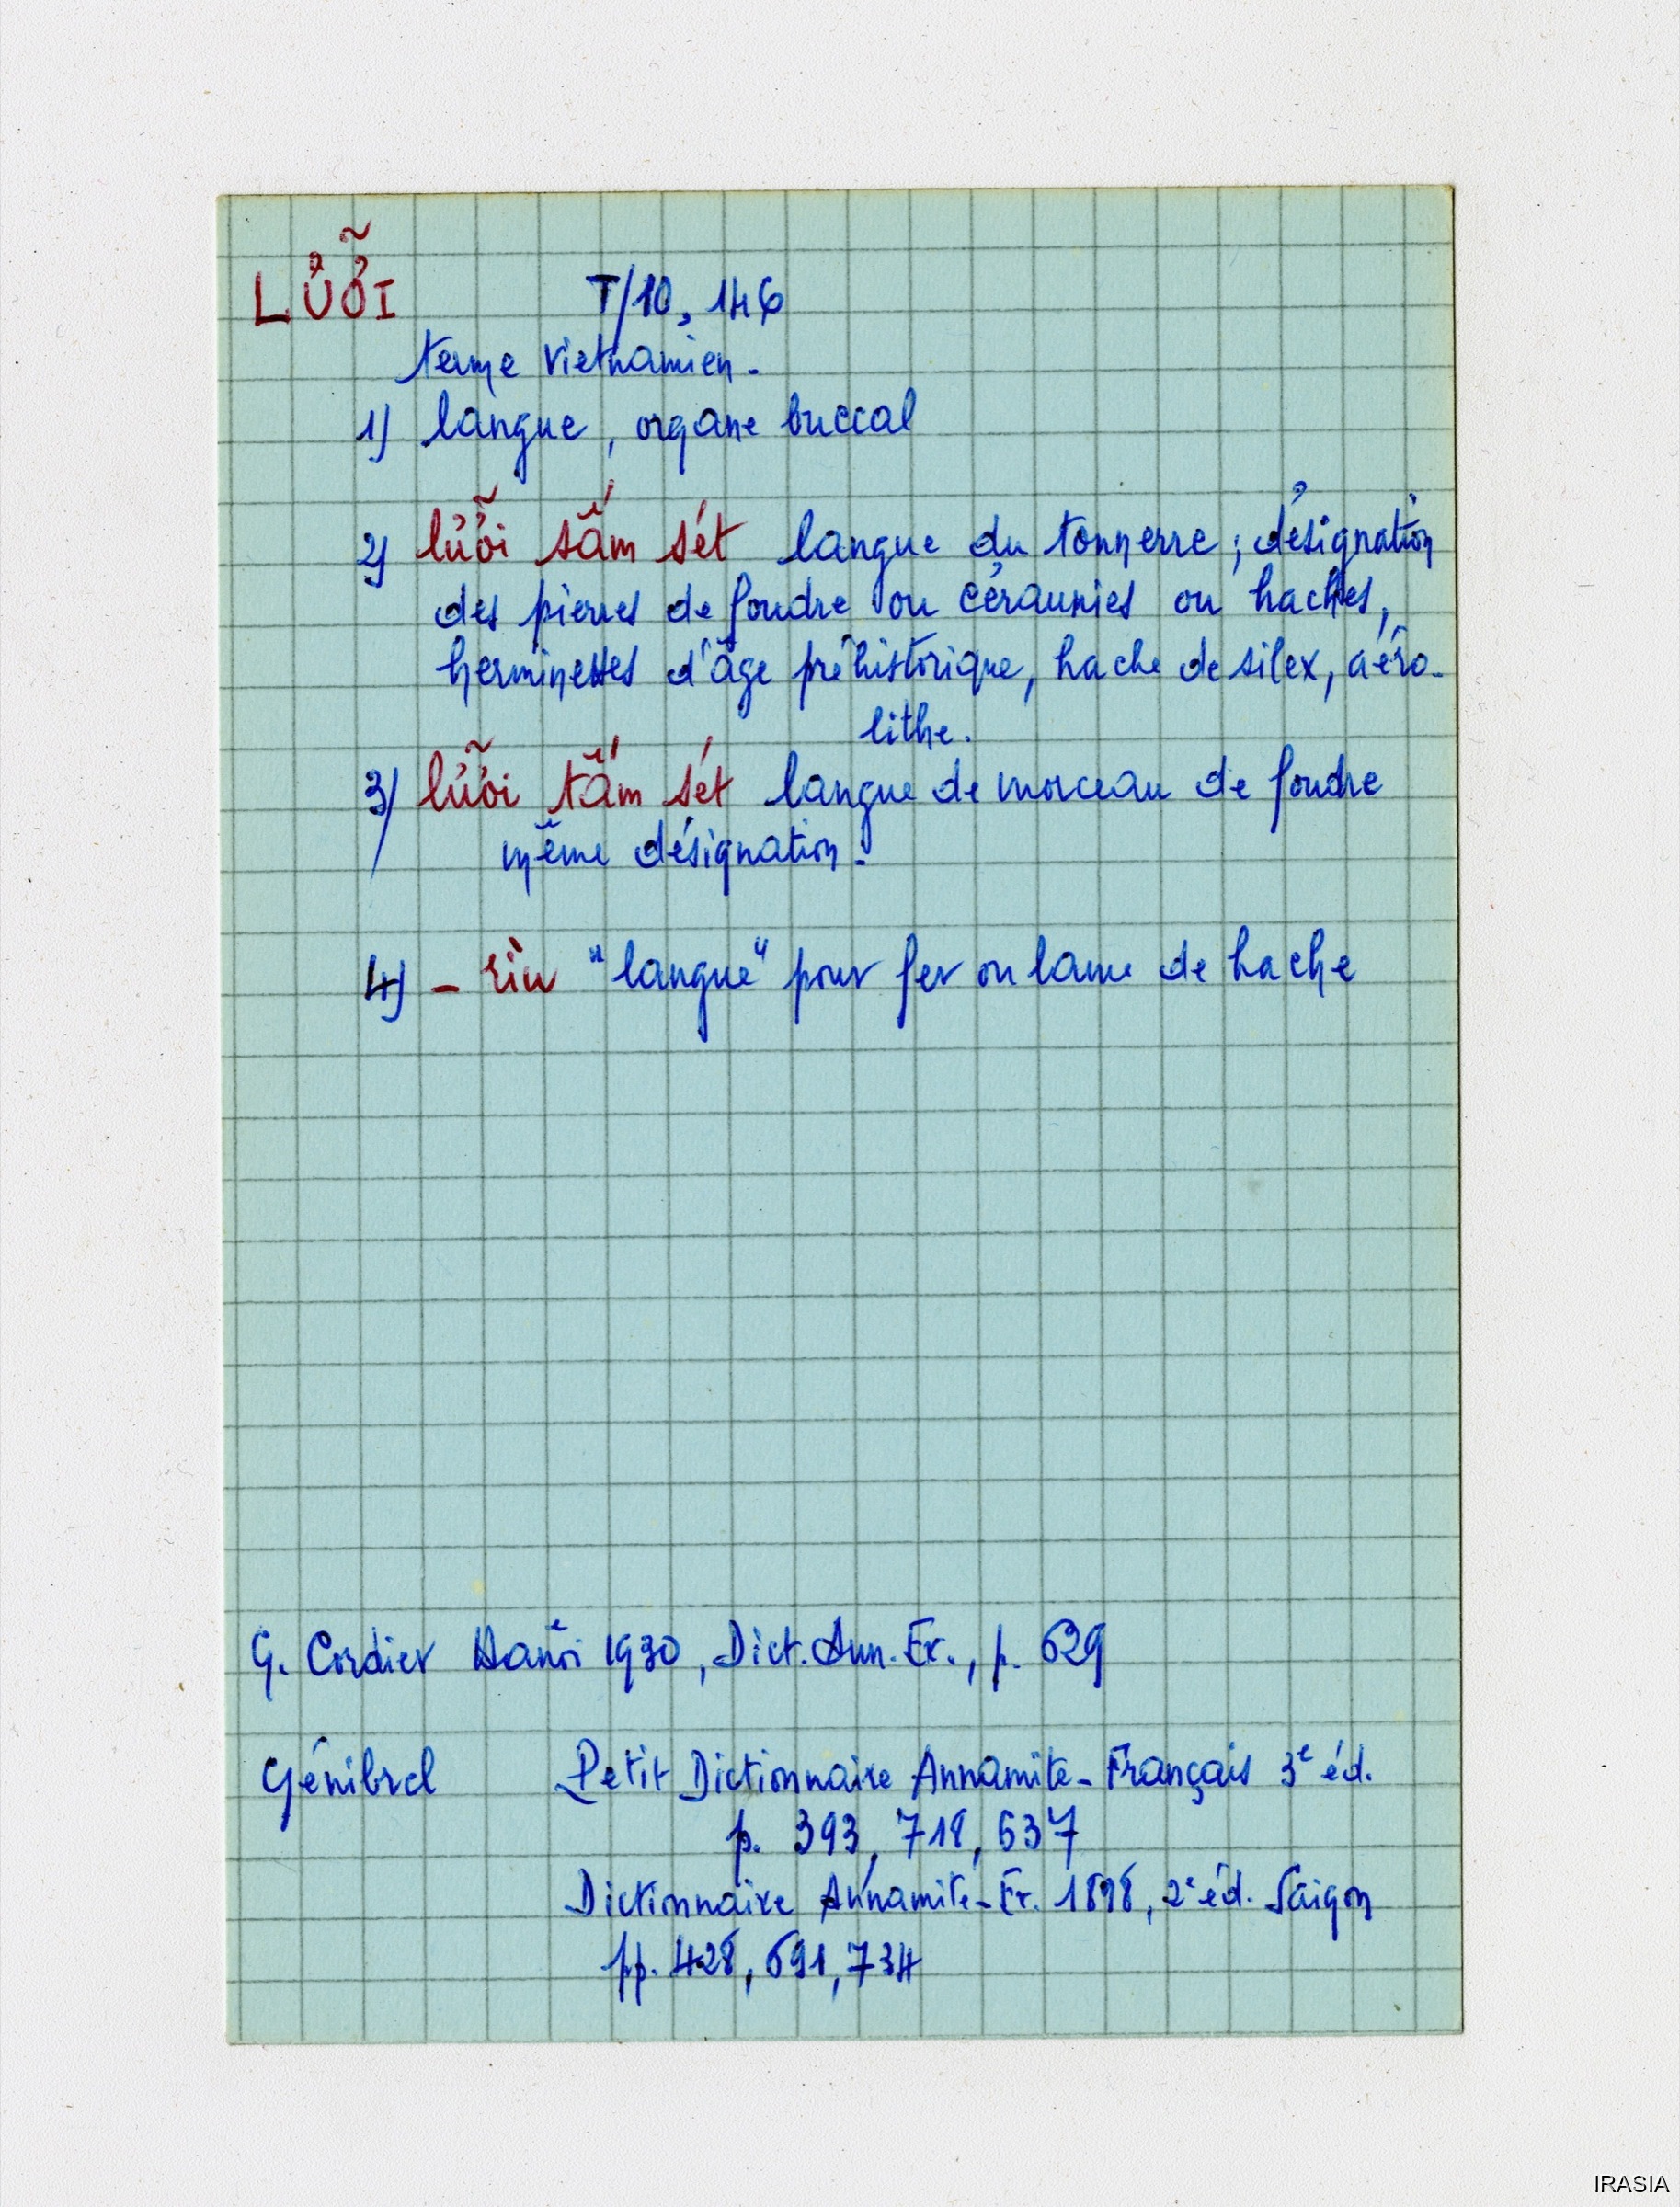 LƯỠI T/10, 146
terme vietnamien.
1) langue, organe buccal
2) lưỡi sấm sét langue du tonnerre ; désignation
des pierres de foudre ou céraunies ou haches,
herminettes d'âge préhistorique, hache de silex, aéro-
lithe.
3) lưỡi tấm sét langue de morceau de foudre
même désignation.
4) – rìu "langue" pour fer ou lame de hache
G. Cordier Hanoi 1930, Dict. Ann. Fr., p. 629
Génibrel Petit Dictionnaire Annamite-Français 3e éd.
p. 393, 718, 637
Dictionnaire Annamite-Fr. 1898, 2e éd. Saigon
pp. 428, 691, 734
IRASIA